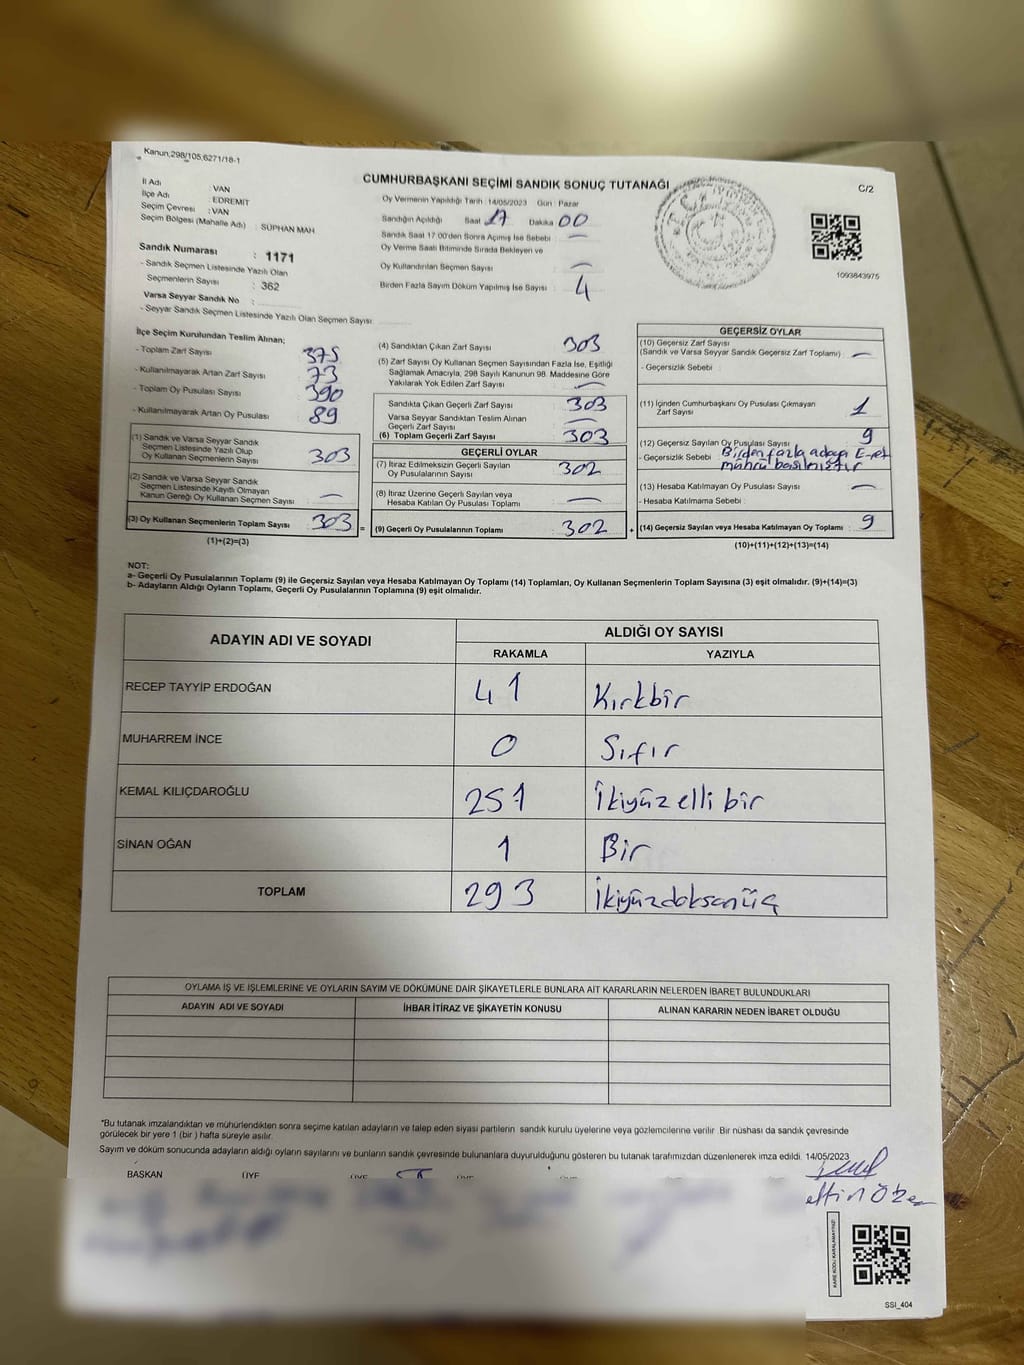 Kanun,298/105,6271/18-1
CUMHURBAŞKANI SEÇİMİ SANDIK SONUÇ TUTANAĞI
C/2
İl Adı : VAN
İlçe Adı : EDREMİT
Seçim Çevresi : VAN
Seçim Bölgesi (Mahalle Adı) : SÜPHAN MAH
Oy Vermenin Yapıldığı Tarih : 14/05/2023 Gün : Pazar
Sandığın Açıldığı Saat 17 Dakika 00
Sandık Saat 17.00'den Sonra Açılmış İse Sebebi —
Oy Verme Saati Bitiminde Sırada Bekleyen ve
Oy Kullandırılan Seçmen Sayısı —
Birden Fazla Sayım Döküm Yapılmış İse Sayısı 4
1093843975
Sandık Numarası : 1171
- Sandık Seçmen Listesinde Yazılı Olan
Seçmenlerin Sayısı : 362
Varsa Seyyar Sandık No :
- Seyyar Sandık Seçmen Listesinde Yazılı Olan Seçmen Sayısı:
İlçe Seçim Kurulundan Teslim Alınan;
- Toplam Zarf Sayısı 375
- Kullanılmayarak Artan Zarf Sayısı 73
- Toplam Oy Pusulası Sayısı 390
- Kullanılmayarak Artan Oy Pusulası 89
(1) Sandık ve Varsa Seyyar Sandık
Seçmen Listesinde Yazılı Olup
Oy Kullanan Seçmenlerin Sayısı 303
(2) Sandık ve Varsa Seyyar Sandık
Seçmen Listesinde Kayıtlı Olmayan
Kanun Gereği Oy Kullanan Seçmen Sayısı —
(3) Oy Kullanan Seçmenlerin Toplam Sayısı 303 =
(1)+(2)=(3)
(4) Sandıktan Çıkan Zarf Sayısı 303
(5) Zarf Sayısı Oy Kullanan Seçmen Sayısından Fazla İse, Eşitliği
Sağlamak Amacıyla, 298 Sayılı Kanunun 98. Maddesine Göre
Yakılarak Yok Edilen Zarf Sayısı —
Sandıkta Çıkan Geçerli Zarf Sayısı 303
Varsa Seyyar Sandıktan Teslim Alınan
Geçerli Zarf Sayısı —
(6) Toplam Geçerli Zarf Sayısı 303
GEÇERLİ OYLAR
(7) İtiraz Edilmeksizin Geçerli Sayılan
Oy Pusulalarının Sayısı 302
(8) İtiraz Üzerine Geçerli Sayılan veya
Hesaba Katılan Oy Pusulası Toplamı —
(9) Geçerli Oy Pusulalarının Toplamı 302 +
GEÇERSİZ OYLAR
(10) Geçersiz Zarf Sayısı
(Sandık ve Varsa Seyyar Sandık Geçersiz Zarf Toplamı) —
- Geçersizlik Sebebi :
(11) İçinden Cumhurbaşkanı Oy Pusulası Çıkmayan
Zarf Sayısı 1
(12) Geçersiz Sayılan Oy Pusulası Sayısı 9
- Geçersizlik Sebebi Birden fazla adaya Evet
mührü basılmıştır
(13) Hesaba Katılmayan Oy Pusulası Sayısı —
- Hesaba Katılmama Sebebi :
(14) Geçersiz Sayılan veya Hesaba Katılmayan Oy Toplamı : 9
(10)+(11)+(12)+(13)=(14)
NOT:
a- Geçerli Oy Pusulalarının Toplamı (9) ile Geçersiz Sayılan veya Hesaba Katılmayan Oy Toplamı (14) Toplamları, Oy Kullanan Seçmenlerin Toplam Sayısına (3) eşit olmalıdır. (9)+(14)=(3)
b- Adayların Aldığı Oyların Toplamı, Geçerli Oy Pusulalarının Toplamına (9) eşit olmalıdır.
ADAYIN ADI VE SOYADI
ALDIĞI OY SAYISI
RAKAMLA YAZIYLA
RECEP TAYYİP ERDOĞAN 41 Kırkbir
MUHARREM İNCE 0 Sıfır
KEMAL KILIÇDAROĞLU 251 İkiyüz elli bir
SİNAN OĞAN 1 Bir
TOPLAM 293 İkiyüzdoksanüç
OYLAMA İŞ VE İŞLEMLERİNE VE OYLARIN SAYIM VE DÖKÜMÜNE DAİR ŞİKAYETLERLE BUNLARA AİT KARARLARIN NELERDEN İBARET BULUNDUKLARI
ADAYIN ADI VE SOYADI İHBAR İTİRAZ VE ŞİKAYETİN KONUSU ALINAN KARARIN NEDEN İBARET OLDUĞU
*Bu tutanak imzalandıktan ve mühürlendikten sonra seçime katılan adayların ve talep eden siyasi partilerin sandık kurulu üyelerine veya gözlemcilerine verilir. Bir nüshası da sandık çevresinde
görülecek bir yere 1 (bir) hafta süreyle asılır.
Sayım ve döküm sonucunda adayların aldığı oyların sayılarını ve bunların sandık çevresinde bulunanlara duyurulduğunu gösteren bu tutanak tarafımızdan düzenlenerek imza edildi. 14/05/2023
BAŞKAN ÜYE ÜYE ÜYE ÜYE
KARE KODU KARALAMAYINIZ!
SSİ_404